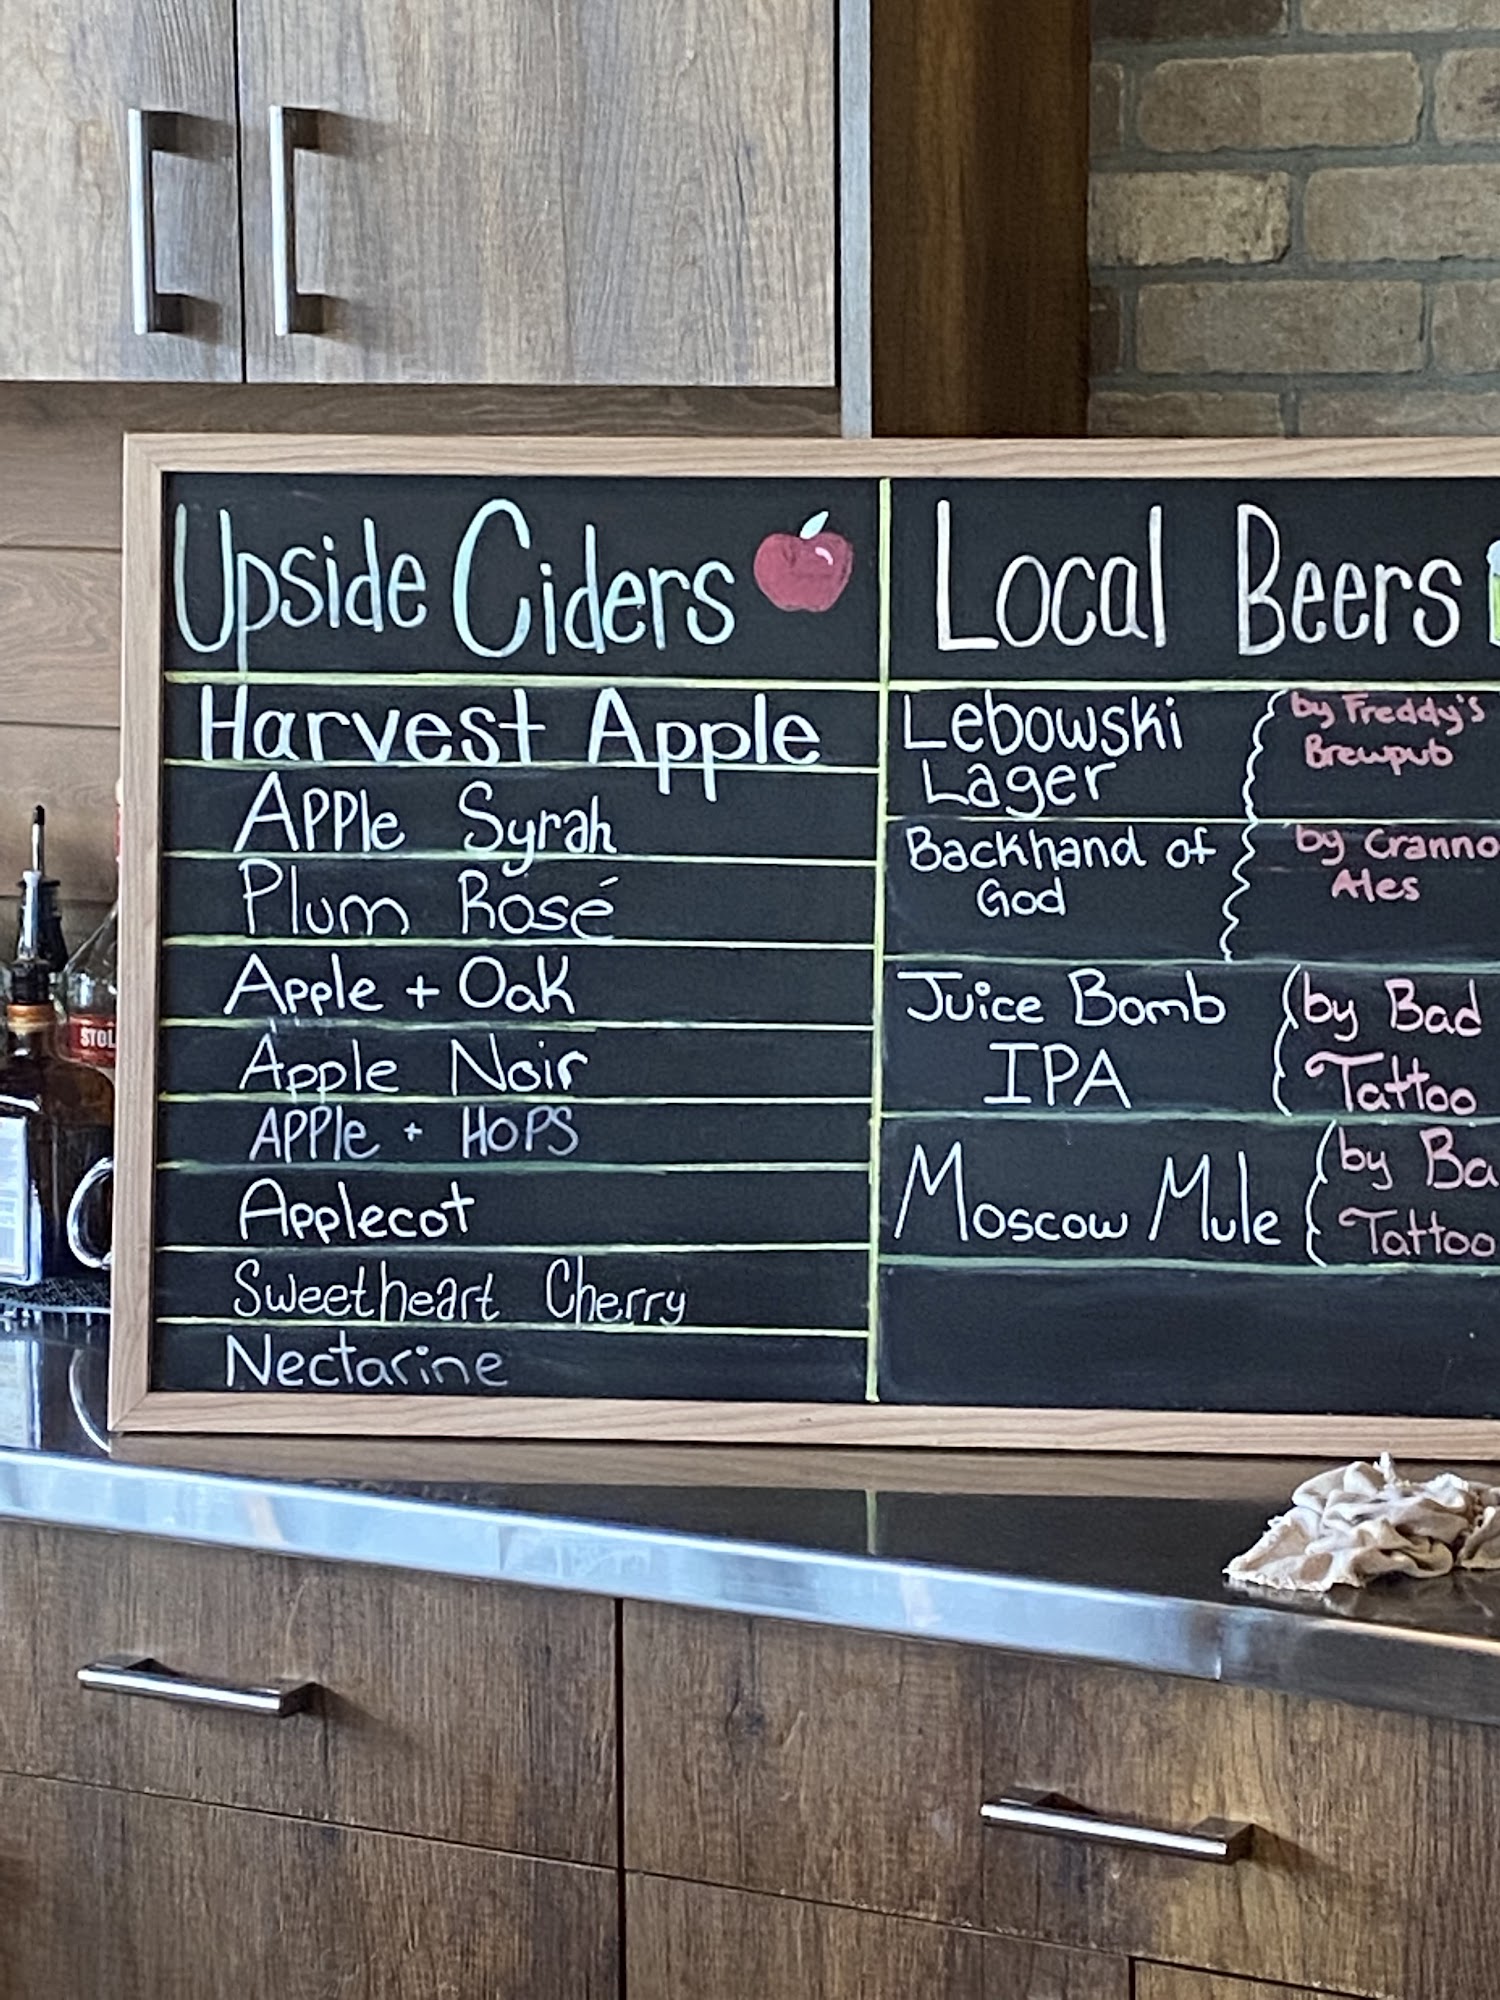 Upside Ciders
Harvest Apple
Apple Syrah
Plum Rosé
Apple + Oak
Apple Noir
Apple + Hops
Applecot
Sweetheart Cherry
Nectarine
Local Beers
Lebowski
Lager
by Freddy's
Brewpub
Backhand of
God
by Cranno
Ales
Juice Bomb
IPA
by Bad
Tattoo
Moscow Mule
by Ba
Tattoo
STOL